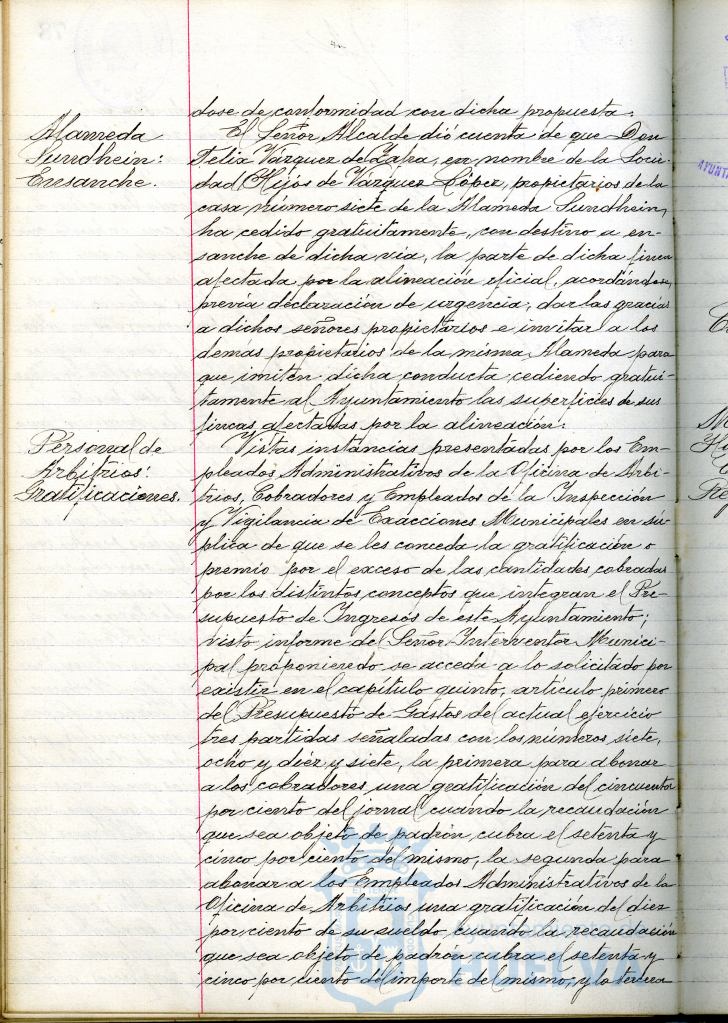 dose de conformidad con dicha propuesta.
Alameda
Sundhein:
Ensanche.
El Señor Alcalde dió cuenta de que Don
Felix Vázquez de Zafra, en nombre de la Socie-
dad Hijos de Vázquez López, propietarios de la
casa número siete de la Alameda Sundhein,
ha cedido gratuitamente, con destino a en-
sanche de dicha via, la parte de dicha finca
afectada por la alineación oficial, acordándose,
prévia declaración de urgencia, dar las gracias
a dichos señores propietarios e invitar a los
demás propietarios de la misma Alameda para
que imiten dicha conducta cediendo gratui-
tamente al Ayuntamiento las superficies de sus
fincas afectadas por la alineación.
Personal de
Arbitrios:
Gratificaciones.
Vistas instancias presentadas por los Em-
pleados Administrativos de la Oficina de Arbi-
trios, Cobradores y Empleados de la Inspección
y Vigilancia de Exacciones Municipales en sú-
plica de que se les conceda la gratificación o
premio por el exceso de las cantidades cobradas
por los distintos conceptos que integran el Pre-
supuesto de Ingresos de este Ayuntamiento;
visto informe del Señor Interventor Munici-
pal proponiendo se acceda a lo solicitado por
existir en el capítulo quinto, artículo primero
del Presupuesto de Gastos del actual ejercicio
tres partidas señaladas con los números siete,
ocho y diez y siete, la primera para abonar
a los cobradores una gratificación del cincuenta
por ciento del jornal cuando la recaudación
que sea objeto de padrón cubra el setenta y
cinco por ciento del mismo; la segunda para
abonar a los Empleados Administrativos de la
Oficina de Arbitrios una gratificación del diez
por ciento de su sueldo cuando la recaudación
que sea objeto de padrón cubra el setenta y
cinco por ciento del importe del mismo; y la tercera
HUELVA